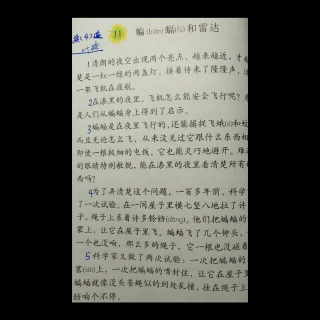 11 蝙(biān)蝠(fú)和雷达
1清朗的夜空出现两个亮点，越来越近，才
是是一红一绿的两盏灯。接着传来了隆隆声，
一架飞机在夜航。
2在漆黑的夜里，飞机怎么能安全飞行呢？
是人们从蝙蝠身上得到了启示。
3蝙蝠是在夜里飞行的，还能捕捉飞蛾(é)和蚊
而且无论怎么飞，从来没见过它跟什么东西相
即使一根极细的电线，它也能灵巧地避开。难
的眼睛特别敏锐，能在漆黑的夜里看清楚所有
西吗？
4为了弄清楚这个问题，一百多年前，科学
了一次试验。在一间屋子里横七竖八地拉了许
子，绳子上系着许多铃铛(dāng)。他们把蝙蝠的
蒙上，让它在屋子里飞。蝙蝠飞了几个钟头，
一个也没响，那么多的绳子，它一根也没碰着
5科学家又做了两次试验：一次把蝙蝠的
塞(sāi)上，一次把蝙蝠的嘴封住，让它在屋子里
蝙蝠就像没头苍蝇似的到处乱撞，挂在绳子上
铛响个不停。